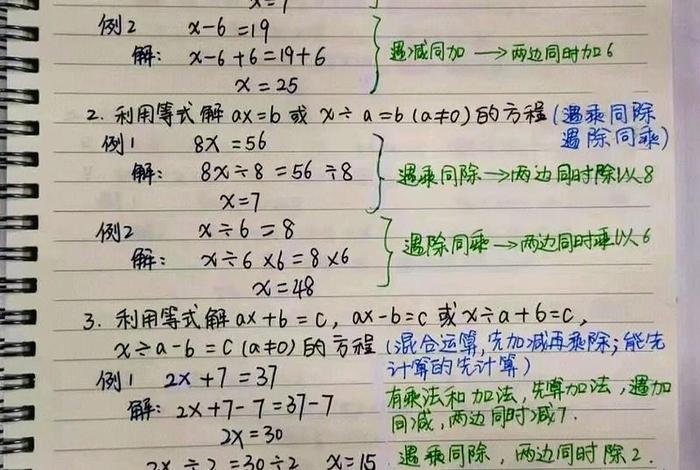 x=7
例2 x-6=19
解: x-6+6=19+6
遇减同加 → 两边同时加6
x=25
2. 利用等式解 ax=b 或 x÷a=b (a≠0) 的方程 (遇乘同除
遇除同乘)
例1 8x=56
解: 8x÷8=56÷8
遇乘同除 → 两边同时除以8
x=7
例2 x÷6=8
解: x÷6×6=8×6
遇除同乘 → 两边同时乘以6
x=48
3. 利用等式解 ax+b=c, ax-b=c 或 x÷a+6=c,
x÷a-6=c (a≠0) 的方程 (混合运算,先加减再乘除; 能先
计算的先计算)
例1 2x+7=37
有乘法和加法, 先算加法, 遇加
解: 2x+7-7=37-7
同减, 两边同时减7.
2x=30
2x÷2=30÷2 x=15
遇乘同除, 两边同时除2.